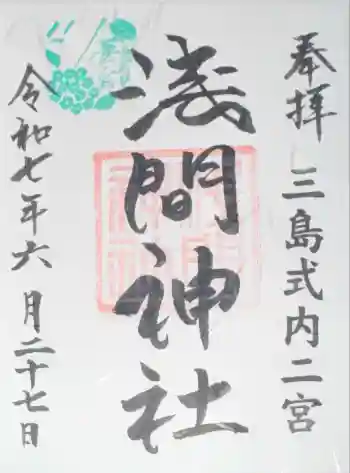 奉拝 三島式内二宮
浅間神社
令和七年六月二十七日